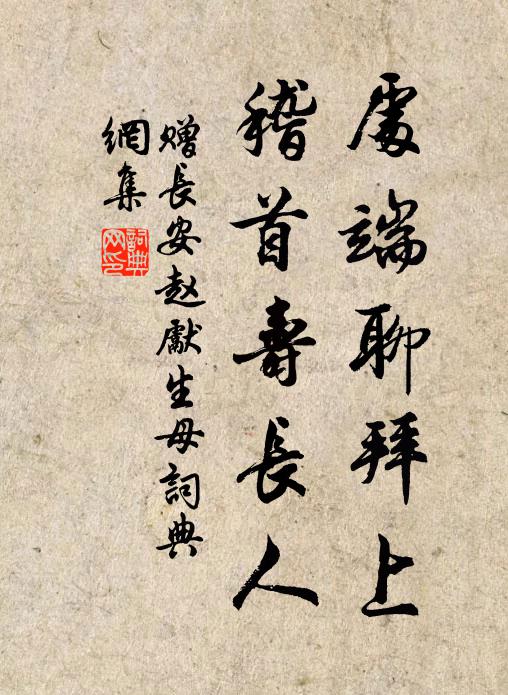 處端聊拜上
稽首壽長人
贈長安赵獻生母詞典
網集
詞典
网印